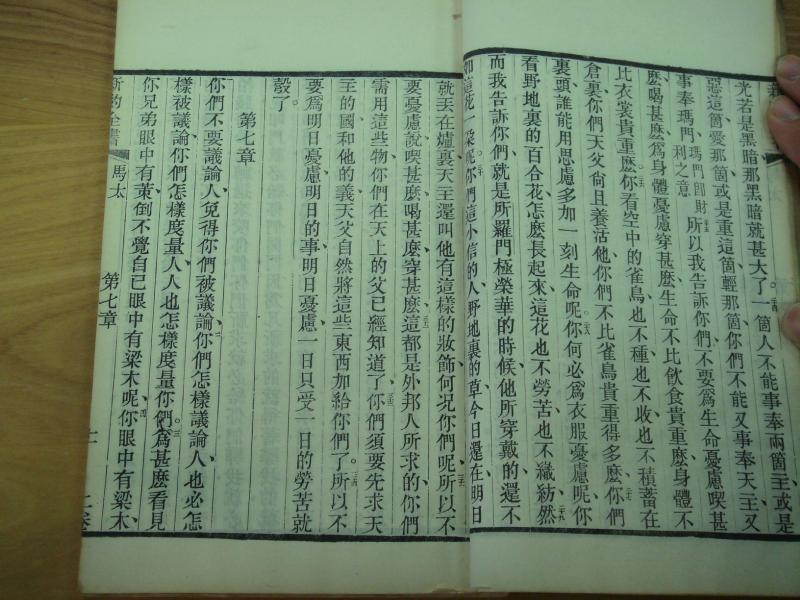 光若是黑暗那黑暗就甚大了。二四一箇人不能事奉兩箇主或是
惡這箇愛那箇或是重這箇輕那箇你們不能又事奉天主又
事奉瑪門瑪門卽財利之意二五所以我告訴你們不要爲生命憂慮喫甚
麽喝甚麽爲身體憂慮穿甚麽生命不比飲食貴重麽身體不
比衣裳貴重麽二六你看空中的雀鳥也不種也不收也不積蓄在
倉裏你們天父尙且養活他你們不比雀鳥貴重得多麽二七你們
裏頭誰能用思慮多加一刻生命呢二八你何必爲衣服憂慮呢你
看野地裏的百合花怎麽長起來這花也不勞苦也不織紡二九然
而我告訴你們就是所羅門極榮華的時候他所穿戴的還不
如這花一朶呢三十你們這小信的人野地裏的草今日還在明日
就丟在爐裏天主還叫他有這樣的妝飾何况你們呢三一所以不
要憂慮說喫甚麽喝甚麽穿甚麽三二這都是外邦人所求的你們
需用這些物你們在天上的父已經知道了三三你們須要先求天
主的國和他的義天父自然將這些東西加給你們了三四所以不
要爲明日憂慮明日的事明日憂慮一日只受一日的勞苦就
彀了。
第七章
一你們不要議論人免得你們被議論二你們怎樣議論人也必怎
樣被議論你們怎樣度量人人也怎樣度量你們。三爲甚麽看見
你兄弟眼中有茦倒不覺自己眼中有梁木呢四你眼中有梁木
新約全書 馬太 第七章 十一 二卷